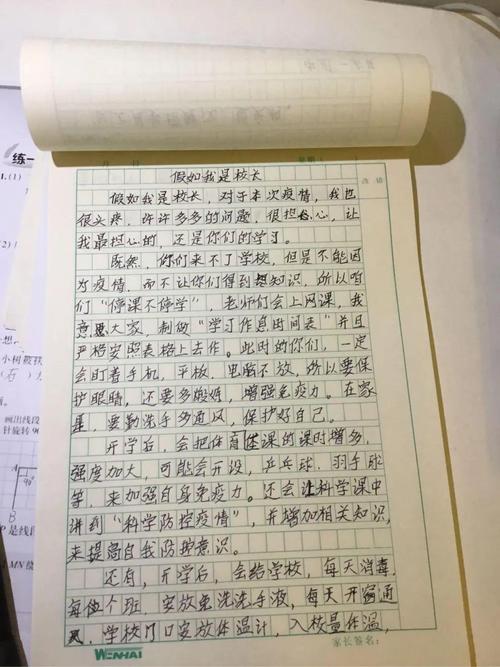 练一
1.(1)
(2)
小树被扶
画出线段
针旋转90
A
90°
B
P是线段
MN绕
月 日 星期( )
改错
假如我是校长
假如我是校长,对于本次疫情,我也
很头疼,许许多多的问题,很担心,让
我最担心的,还是你们的学习。
既然,你们来不了学校,但是不能因
为疫情,而不让你们得到想知识,所以咱
们“停课不停学”,老师们会上网课,我
意思大家,制做“学习作息时间表”并且
严格安照表格上去作。此时的你们,一定
会盯着手机,平板,电脑不放,所以要保
护眼睛,还要多煅炼,增强免疫力。在家
里,要勤洗手多通风,保护好自己。
开学后,会把体育课的课时增多,
强度加大,可能会开设,乒乓球,羽毛球
等,来加强自身免疫力。还会让科学课中
讲到“科学防控疫情”,并增加相关知识,
来提高自我防护意识。
还有,开学后,会给学校,每天消毒,
每个班,安放免洗洗手液,每天开窗通
风,学校门口安放体温计,入校量体温,
WENHAI
家长签名: